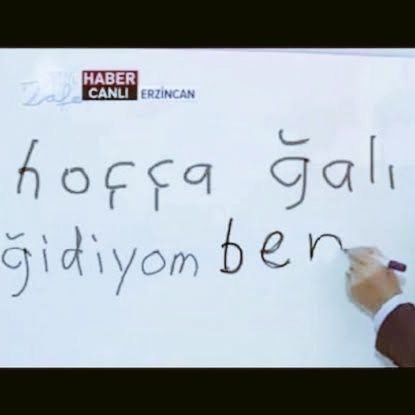 HABER
CANLI ERZİNCAN
hoçça ğalı
ğidiyom ben